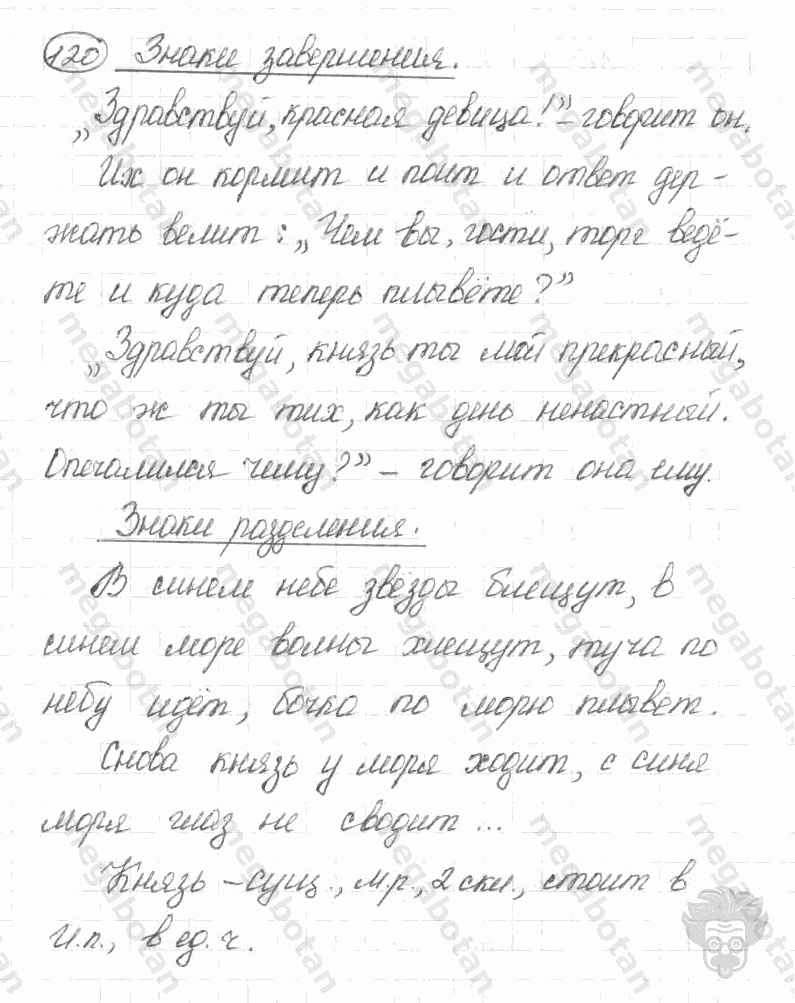 120 Знаки завершения.
„Здравствуй, красная девица!” – говорит он.
Их он кормит и поит и ответ дер-
жать велит: „Чем вы, гости, торг ведё-
те и куда теперь плывёте?”
„Здравствуй, князь ты мой прекрасный,
что ж ты тих, как день ненастный.
Опечалился чему?” – говорит она ему.
Знаки разделения.
В синем небе звёзды блещут, в
синем море волны хлещут, туча по
небу идёт, бочка по морю плывет.
Снова князь у моря ходит, с синя
моря глаз не сводит...
Князь – сущ., м.р., 2 скл., стоит в
И.п., в ед.ч.
megabotan